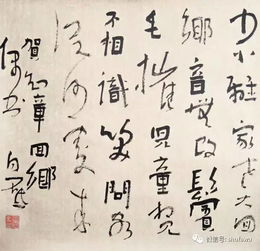 少小離家老大回
鄉音無改鬢
毛摧兒童見
不相識笑問客
從何處來
賀知章回鄉
偶書
微信号: shufawu